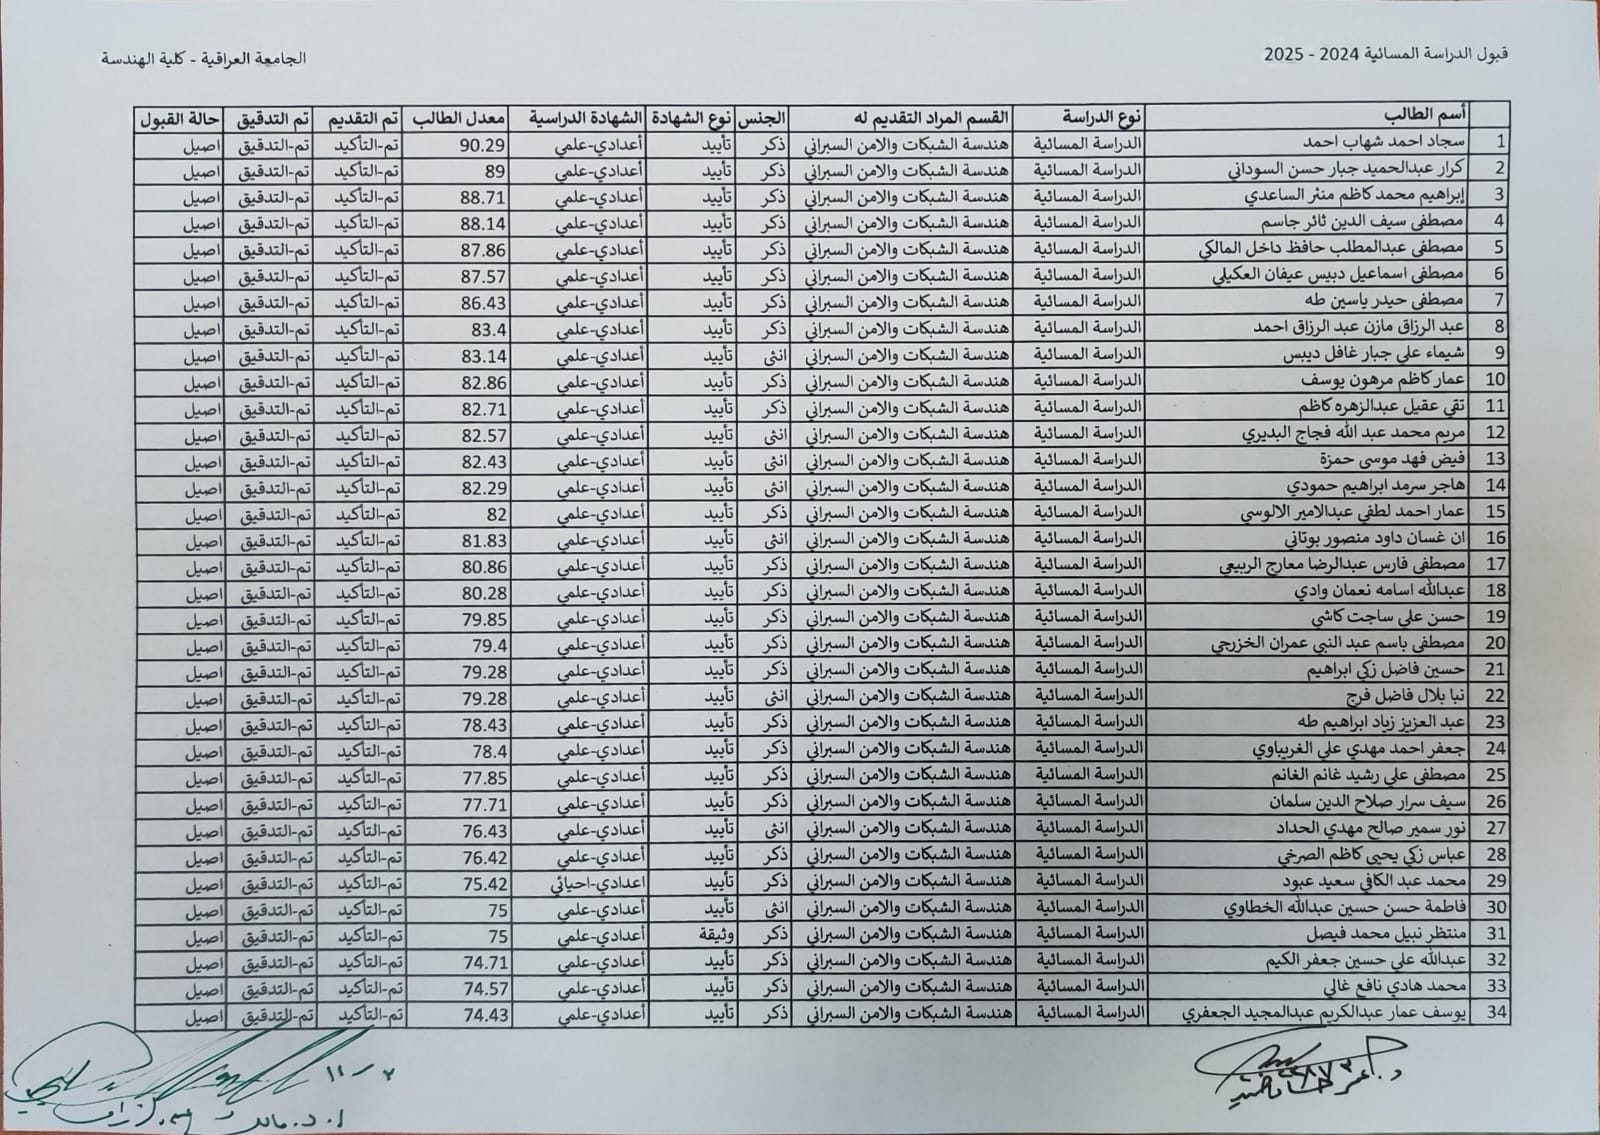 قبول الدراسة المسائية 2024 - 2025
الجامعة العراقية - كلية الهندسة
أسم الطالب نوع الدراسة القسم المراد التقديم له الجنس نوع الشهادة الشهادة الدراسية معدل الطالب تم التقديم تم التدقيق حالة القبول
1 سجاد احمد شهاب احمد الدراسة المسائية هندسة الشبكات والامن السبراني ذكر تأييد أعدادي-علمي 90.29 تم-التأكيد تم-التدقيق اصيل
2 كرار عبدالحميد جبار حسن السوداني الدراسة المسائية هندسة الشبكات والامن السبراني ذكر تأييد أعدادي-علمي 89 تم-التأكيد تم-التدقيق اصيل
3 إبراهيم محمد كاظم منثر الساعدي الدراسة المسائية هندسة الشبكات والامن السبراني ذكر تأييد أعدادي-علمي 88.71 تم-التأكيد تم-التدقيق اصيل
4 مصطفى سيف الدين ثائر جاسم الدراسة المسائية هندسة الشبكات والامن السبراني ذكر تأييد أعدادي-علمي 88.14 تم-التأكيد تم-التدقيق اصيل
5 مصطفى عبدالمطلب حافظ داخل المالكي الدراسة المسائية هندسة الشبكات والامن السبراني ذكر تأييد أعدادي-علمي 87.86 تم-التأكيد تم-التدقيق اصيل
6 مصطفى اسماعيل دبيس عيفان العكيلي الدراسة المسائية هندسة الشبكات والامن السبراني ذكر تأييد أعدادي-علمي 87.57 تم-التأكيد تم-التدقيق اصيل
7 مصطفى حيدر ياسين طه الدراسة المسائية هندسة الشبكات والامن السبراني ذكر تأييد أعدادي-علمي 86.43 تم-التأكيد تم-التدقيق اصيل
8 عبد الرزاق مازن عبد الرزاق احمد الدراسة المسائية هندسة الشبكات والامن السبراني ذكر تأييد أعدادي-علمي 83.4 تم-التأكيد تم-التدقيق اصيل
9 شيماء علي جبار غافل دبيس الدراسة المسائية هندسة الشبكات والامن السبراني انثى تأييد أعدادي-علمي 83.14 تم-التأكيد تم-التدقيق اصيل
10 عمار كاظم مرهون يوسف الدراسة المسائية هندسة الشبكات والامن السبراني ذكر تأييد أعدادي-علمي 82.86 تم-التأكيد تم-التدقيق اصيل
11 تقي عقيل عبدالزهره كاظم الدراسة المسائية هندسة الشبكات والامن السبراني ذكر تأييد أعدادي-علمي 82.71 تم-التأكيد تم-التدقيق اصيل
12 مريم محمد عبد الله فجاج البديري الدراسة المسائية هندسة الشبكات والامن السبراني انثى تأييد أعدادي-علمي 82.57 تم-التأكيد تم-التدقيق اصيل
13 فيض فهد موسى حمزة الدراسة المسائية هندسة الشبكات والامن السبراني انثى تأييد أعدادي-علمي 82.43 تم-التأكيد تم-التدقيق اصيل
14 هاجر سرمد ابراهيم حمودي الدراسة المسائية هندسة الشبكات والامن السبراني انثى تأييد أعدادي-علمي 82.29 تم-التأكيد تم-التدقيق اصيل
15 عمار احمد لطفي عبدالامير الالوسي الدراسة المسائية هندسة الشبكات والامن السبراني ذكر تأييد أعدادي-علمي 82 تم-التأكيد تم-التدقيق اصيل
16 ان غسان داود منصور بوتاني الدراسة المسائية هندسة الشبكات والامن السبراني انثى تأييد أعدادي-علمي 81.83 تم-التأكيد تم-التدقيق اصيل
17 مصطفى فارس عبدالرضا معارج الربيعي الدراسة المسائية هندسة الشبكات والامن السبراني ذكر تأييد أعدادي-علمي 80.86 تم-التأكيد تم-التدقيق اصيل
18 عبدالله اسامه نعمان وادي الدراسة المسائية هندسة الشبكات والامن السبراني ذكر تأييد أعدادي-علمي 80.28 تم-التأكيد تم-التدقيق اصيل
19 حسن علي ساجت كاشي الدراسة المسائية هندسة الشبكات والامن السبراني ذكر تأييد أعدادي-علمي 79.85 تم-التأكيد تم-التدقيق اصيل
20 مصطفى باسم عبد النبي عمران الخزرجي الدراسة المسائية هندسة الشبكات والامن السبراني ذكر تأييد أعدادي-علمي 79.4 تم-التأكيد تم-التدقيق اصيل
21 حسين فاضل زكي ابراهيم الدراسة المسائية هندسة الشبكات والامن السبراني ذكر تأييد أعدادي-علمي 79.28 تم-التأكيد تم-التدقيق اصيل
22 نبا بلال فاضل فرج الدراسة المسائية هندسة الشبكات والامن السبراني انثى تأييد أعدادي-علمي 79.28 تم-التأكيد تم-التدقيق اصيل
23 عبد العزيز زياد ابراهيم طه الدراسة المسائية هندسة الشبكات والامن السبراني ذكر تأييد أعدادي-علمي 78.43 تم-التأكيد تم-التدقيق اصيل
24 جعفر احمد مهدي علي الغريباوي الدراسة المسائية هندسة الشبكات والامن السبراني ذكر تأييد أعدادي-علمي 78.4 تم-التأكيد تم-التدقيق اصيل
25 مصطفى علي رشيد غانم الغانم الدراسة المسائية هندسة الشبكات والامن السبراني ذكر تأييد أعدادي-علمي 77.85 تم-التأكيد تم-التدقيق اصيل
26 سيف سرار صلاح الدين سلمان الدراسة المسائية هندسة الشبكات والامن السبراني ذكر تأييد أعدادي-علمي 77.71 تم-التأكيد تم-التدقيق اصيل
27 نور سمير صالح مهدي الحداد الدراسة المسائية هندسة الشبكات والامن السبراني انثى تأييد أعدادي-علمي 76.43 تم-التأكيد تم-التدقيق اصيل
28 عباس زكي يحيى كاظم الصرخي الدراسة المسائية هندسة الشبكات والامن السبراني ذكر تأييد أعدادي-علمي 76.42 تم-التأكيد تم-التدقيق اصيل
29 محمد عبد الكافي سعيد عبود الدراسة المسائية هندسة الشبكات والامن السبراني ذكر تأييد اعدادي-احيائي 75.42 تم-التأكيد تم-التدقيق اصيل
30 فاطمة حسن حسين عبدالله الخطاوي الدراسة المسائية هندسة الشبكات والامن السبراني انثى تأييد أعدادي-علمي 75 تم-التأكيد تم-التدقيق اصيل
31 منتظر نبيل محمد فيصل الدراسة المسائية هندسة الشبكات والامن السبراني ذكر وثيقة أعدادي-علمي 75 تم-التأكيد تم-التدقيق اصيل
32 عبدالله علي حسين جعفر الكيم الدراسة المسائية هندسة الشبكات والامن السبراني ذكر تأييد أعدادي-علمي 74.71 تم-التأكيد تم-التدقيق اصيل
33 محمد هادي نافع غالي الدراسة المسائية هندسة الشبكات والامن السبراني ذكر تأييد أعدادي-علمي 74.57 تم-التأكيد تم-التدقيق اصيل
34 يوسف عمار عبدالكريم عبدالمجيد الجعفري الدراسة المسائية هندسة الشبكات والامن السبراني ذكر تأييد أعدادي-علمي 74.43 تم-التأكيد تم-التدقيق اصيل